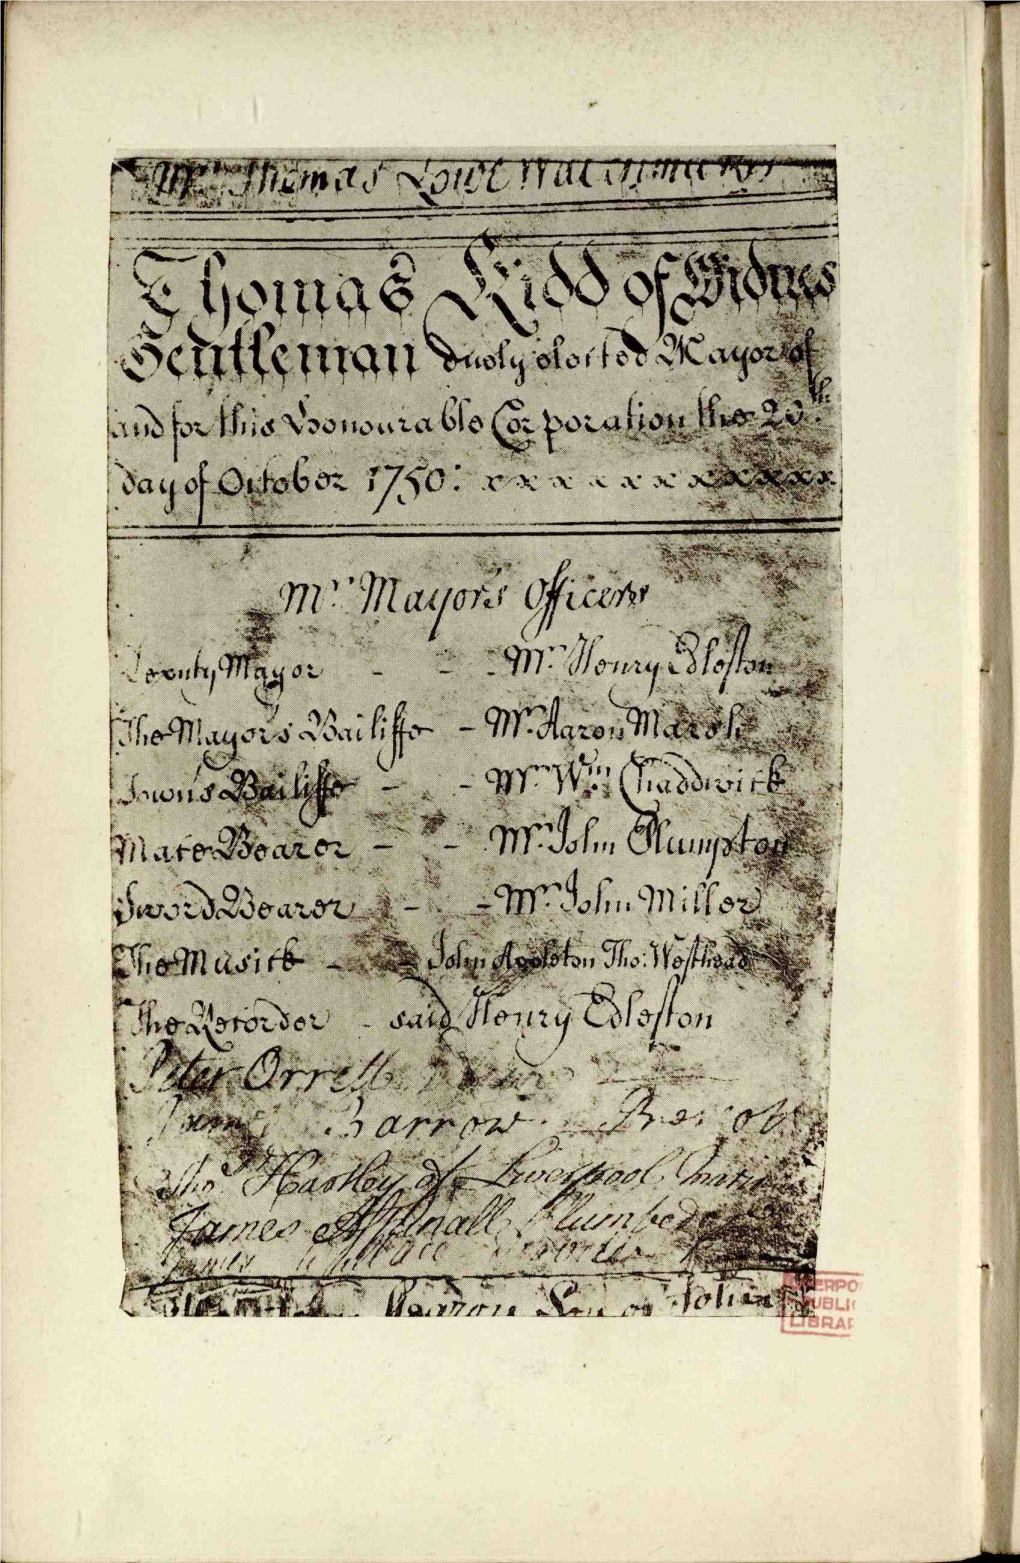 Mr. Thomas Lowe Watchmaker
Thomas Kidd of Widnes
Gentleman duely elected Mayor of
and for this Honourable Corporation the 20th
day of October 1750: x x x x x x x x x x x x
Mr. Mayor's Officers
Deputy Mayor - - - Mr. Henry Edleston
The Mayor's Bailiffe - Mr. Aaron Marsh
Town's Bailiffe - - Mr. Wm. Chaddwick
Mace Bearer - - Mr. John Plumpton
Sword Bearer - - Mr. John Miller
The Musick - - John Appleton Tho: Westhead
The Recorder - said Henry Edleston
Peter Orrell
James Barrow Prescot
Thos. Hartley of Liverpool
James Aspinall Plumber
James Wallace
Aaron Son of John
LIVERPO
PUBLI
LIBRAR